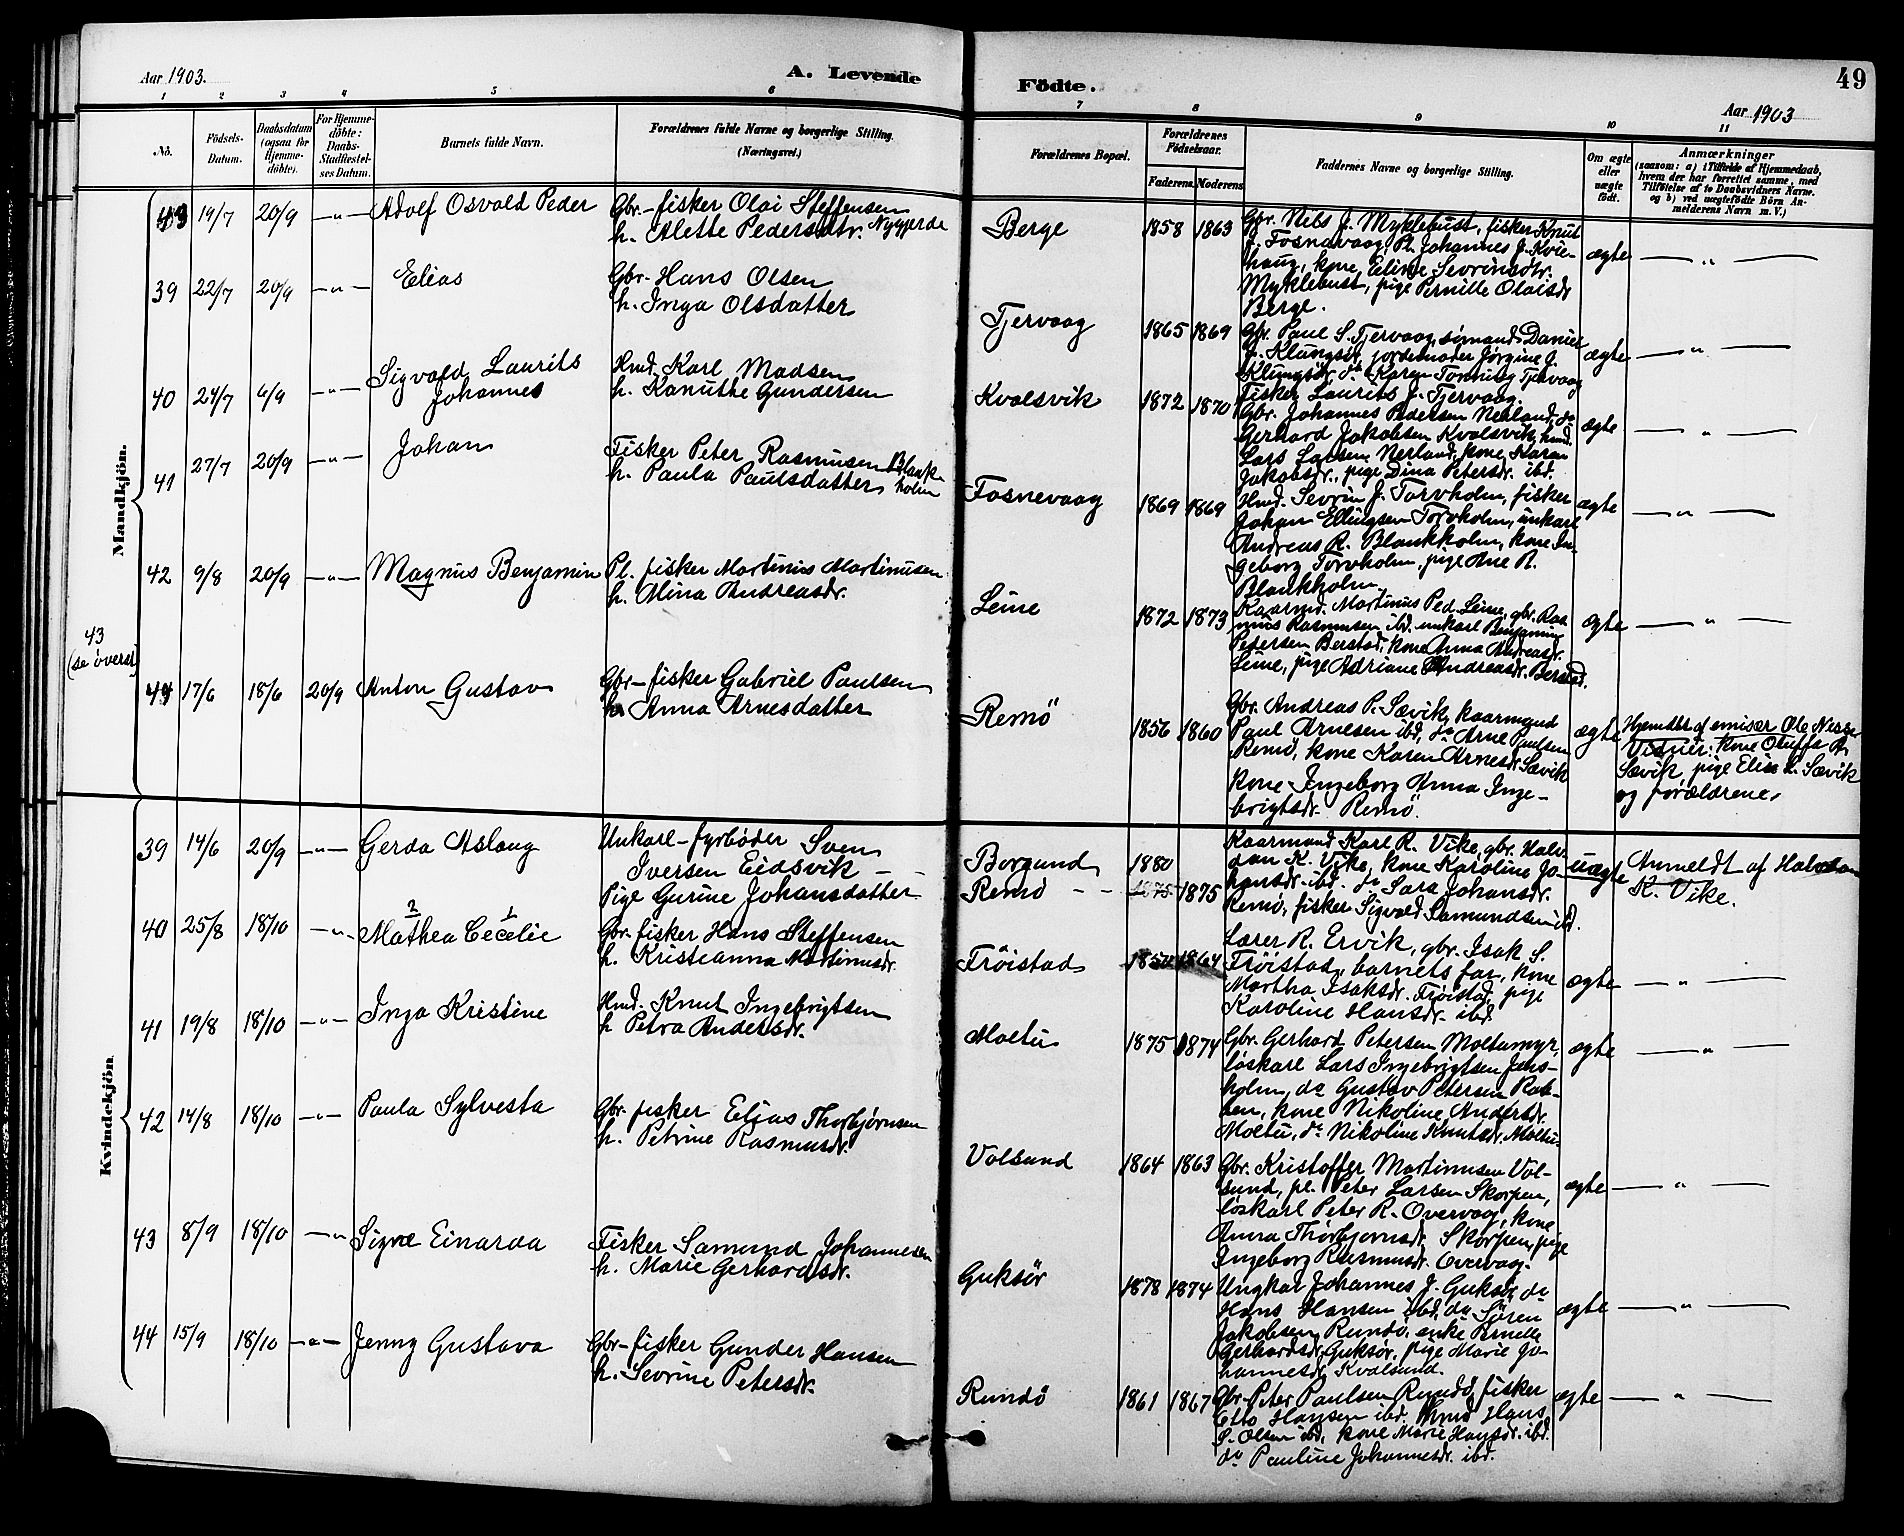 Aar 1903.
A. Levende
Födte.
49
Aar 1903
1 2 3 4 5 6
7 8 9 10 11
No.
Födsels-
Datum.
Daabsdatum
(ogsaa for
Hjemme-
döbte).
For Hjemme-
döbte:
Daabs-
Stadfæstel-
ses Datum.
Barnets fulde Navn.
Forældrenes fulde Navne og borgerlige Stilling.
(Næringsvei.)
Forældrenes Bopæl.
Forældrenes
Födselsaar.
Faderens. Moderens.
Faddernes Navne og borgerlige Stilling.
Om ægte
eller
uægte
født.
Anmærkninger
(saasom: a) i Tilfælde af Hjemmedaab,
hvem der har forrettet samme, med
Tilföielse af to Daabsvidners Navne.
og b) ved uægtefödte Börn An-
melderens Navn m. V.)
Mandkjön.
43 19/7 20/9 —„— Adolf Osvald Peder
Gbr-fisker Olai Steffensen
h. Alette Pedersdtr. Nygjerde
Berge 1858 1863
Gbr. Nils J. Myklebust, fisker Knut
J. Fosnavaag, Pl. Johannes J. Kvie-
haug, kone Eline Sevrinsdtr.
Myklebust, pige Pernille Olaisdr
Berge.
ægte — „ —
39 22/7 20/9 —„— Elias
Gbr- Hans Olsen
h. Inga Olsdatter
Tjervaag 1865 1869
Gbr. Paul S. Tjervaag, sömand Daniel
J. Klungsör, jordemoder Jörgine J.
Klungsör, do Karen Tjervaag
Fisker Laurits J. Tjervaag.
ægte — „ —
40 24/7 6/9 —„— Sigvald Laurits
Johannes
Hmd. Karl Madsen
h. Kanutte Gundersen
Kvalsvik 1872 1870
Gbr. Johannes Pedersen Nerland, do
Gerhard Jakobsen Kvalsvik, hmd.
Lars Larsen Nerland, kone Maran
Jakobsdr., pige Dina Petersdr. ibd.
ægte — „ —
41 27/7 20/9 —„— Johan
Fisker Peter Rasmusen Blank-
holm
h. Paula Paulsdatter
Fosnevaag 1869 1869
Hmd. Sevrin J. Torvholm, fisker
Johan Ellingsen Torvholm, unkarl
Andreas R. Blankholm, kone In-
geborg Torvholm, pige Ane R.
Blankholm
ægte — „ —
42 9/8 20/9 —„— Magnus Benjamin
Pl. fisker Martinus Martinusen
h. Alina Andreasdr.
Leine 1872 1873
Kaarmd. Martinus Ped. Leine, gbr. Ras-
mus Rasmusen ibd. unkarl Benjamin
Petersen Berstad, kone Anna Andreasdr.
Leine, pige Adriane Andreasdr. Berstad.
ægte — „ —
43
(se øverst)
44 17/6 18/6 20/9 Anton Gustav
Gbr-fisker Gabriel Paulsen
h. Anna Arnesdatter
Remö 1856 1860
Gbr. Andreas P. Sævik, kaarmand
Paul Arnesen ibd, do Arne Paulsen
Remö, kone Karen Arnesdr. Sævik
kone Ingeborg Anna Inge-
brigtsdr. Remö.
ægte
Hjemdbt. af emisær Ole Nesse
Vidner: kone Oluffa A.
Sævik, pige Elise L. Sævik
og forældrene.
Kvindekjön.
39 14/6 20/9 —„— Gerda Aslaug
Unkarl-fyrbøder Sven
Iversen Eidsvik — —
Pige Gurine Johansdatter
Borgund 1880
Remö — — 1875 1875
Kaarmand Karl R. Vike, gbr. Halv-
dan K. Vike, kone Karoline Jo-
hansdr. ibd. do Sara Johansdr.
Remö, fisker Sigvald Samundsen ibd.
uægte
Anmeldt af Halvdan
K. Vike.
40 25/8 18/10 —„— Mathea 2 Cecelie 1
Gbr-fisker Hans Steffensen
h. Kristianna Martinusdr.
Fröistad 1850 1864
Lærer R. Ervik, gbr. Isak S.
Fröistad, barnets far, kone
Martha Isaksdr. Fröistad, pige
Karoline Hansdr. ibd
ægte — „ —
41 19/8 18/10 —„— Inga Kristine
Hmd. Knut Ingebrigtsen
h Petra Andersdr.
Moltu 1875 1874
Gbr. Gerhard Petersen Moltumyr,
löskarl Lars Ingebrigtsen Jens-
holm, do Gustav Petersen Rab-
ben, kone Nikoline Andersdr.
Moltu, do Nikoline Knutsdr. Moltu.
ægte — „ —
42 14/8 18/10 —„— Paula Sylvesta
Gbr. fisker Elias Thorbjørnsen
h. Petrine Rasmusdr.
Volsund 1864 1863
Gbr. Kristoffer Martinusen Vol-
sund, pl. Peter Larsen Skorpen,
löskarl Peter R. Overvaag, kone
Anna Thorbjørnsdr. Skorpen, pige
Ingeborg Rasmusdr. Overvaag.
ægte — „ —
43 8/9 18/10 —„ Signe Einarda
Fisker Samund Johannesen
h. Marie Gerhardsdr.
Guksör 1878 1874
Ungkar Johannes J. Guksör, do
Hans Hansen ibd, do Sören
Jakobsen Rundö, enke Pernelle
Gerhardsdr. Guksör, pige Marie Jo-
hannesdr. Kvalsund.
ægte — „ —
44 15/9 18/10 —„— Jenny Gustava
Gbr-fisker Gunder Hansen
h. Sevrine Petersdr.
Rundö 1861 1867
Gbr. Peter Paulsen Rundö, fisker
Otto Hansen ibd. hmd Hans
S. Olsen ibd, kone Marie Hansdr. ibd.
do Pauline Johannesdr. ibd.
ægte — „ —